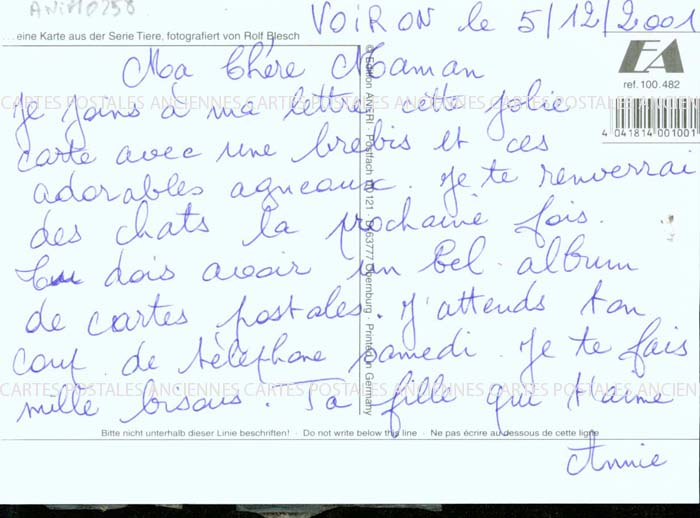 ANIM0258
VOIRON le 5/12/2001
...eine Karte aus der Serie Tiere, fotografiert von Rolf Blesch
EA
ref. 100.482
4 041814 001001
Ma Chère Maman
Je joins à ma lettre cette jolie
CARTES POSTALES ANCIENNES CARTES POSTALES ANCIENNES CARTES POSTALES ANCIENNES
carte avec une brebis et ces
adorables agneaux. Je te renverrai
des chats la prochaine fois.
Tu dois avoir un bel album
de cartes postales. J'attends ton
coup de téléphone samedi. Je te fais
CARTES POSTALES ANCIENNES CARTES POSTALES ANCIENNES CARTES POSTALES ANCIEN
mille bisous. Ta fille qui t'aime
Annie
Postfach
Printed in Germany
Bitte nicht unterhalb dieser Linie beschriften! · Do not write below this line · Ne pas écrire au dessous de cette ligne